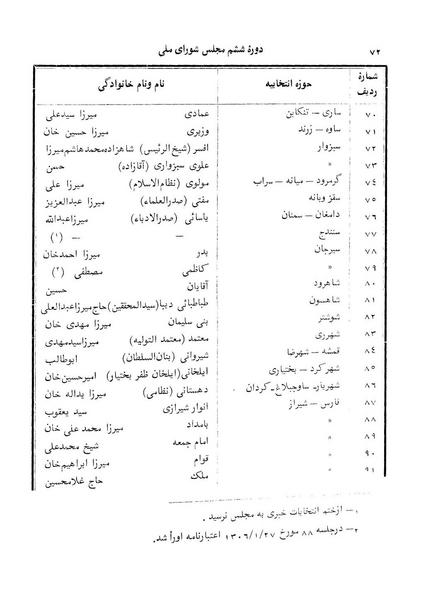 ۷۲ دورهٔ ششم مجلس شورای ملی
شمارهٔ ردیف حوزه انتخابیه نام ونام خانوادگی
۷۰ ساری – تنکابن عمادی میرزا سیدعلی
۷۱ ساوه – زرند وزیری میرزا حسین خان
۷۲ سبزوار افسر (شیخ الرئیس) شاهزاده محمدهاشم میرزا
۷۳ » علوی سبزواری (آقازاده) حسن
۷۴ گرمرود – میانه – سراب مولوی (نظام‌الاسلام) میرزا علی
۷۵ سقز وبانه مفتی (صدرالعلماء) میرزا عبدالعزیز
۷۶ دامغان – سمنان یاسائی (صدرالادباء) میرزا عبدالله
۷۷ سنندج – – (۱)
۷۸ سیرجان بدر میرزا احمدخان
۷۹ » کاظمی مصطفی (۲)
۸۰ شاهرود آقایان حسین
۸۱ شاهسون طباطبائی دیبا (سیدالمحققین) حاج میرزا عبدالعلی
۸۲ شوشتر بنی سلیمان میرزا مهدی خان
۸۳ شهرری معتمد (معتمد التولیه) میرزا سیدمهدی
۸۴ قمشه – شهرضا شیروانی (بنان‌السلطان) ابوطالب
۸۵ شهرکرد – بختیاری ایلخانی (ایلخان ظفر بختیار) امیرحسین خان
۸۶ شهریار – ساوجبلاغ – کردان دهستانی (نظامی) میرزا یداله خان
۸۷ فارس – شیراز انوار شیرازی سید یعقوب
۸۸ » بامداد میرزا محمد علی خان
۸۹ » امام جمعه شیخ محمدعلی
۹۰ » قوام میرزا ابراهیم خان
۹۱ » ملک حاج غلامحسین
۱– ازختم انتخابات خبری به مجلس نرسید .
۲– درجلسه ۸۸ مورخ ۱۳۰۶/۱/۲۷ اعتبارنامه اورأ شد.